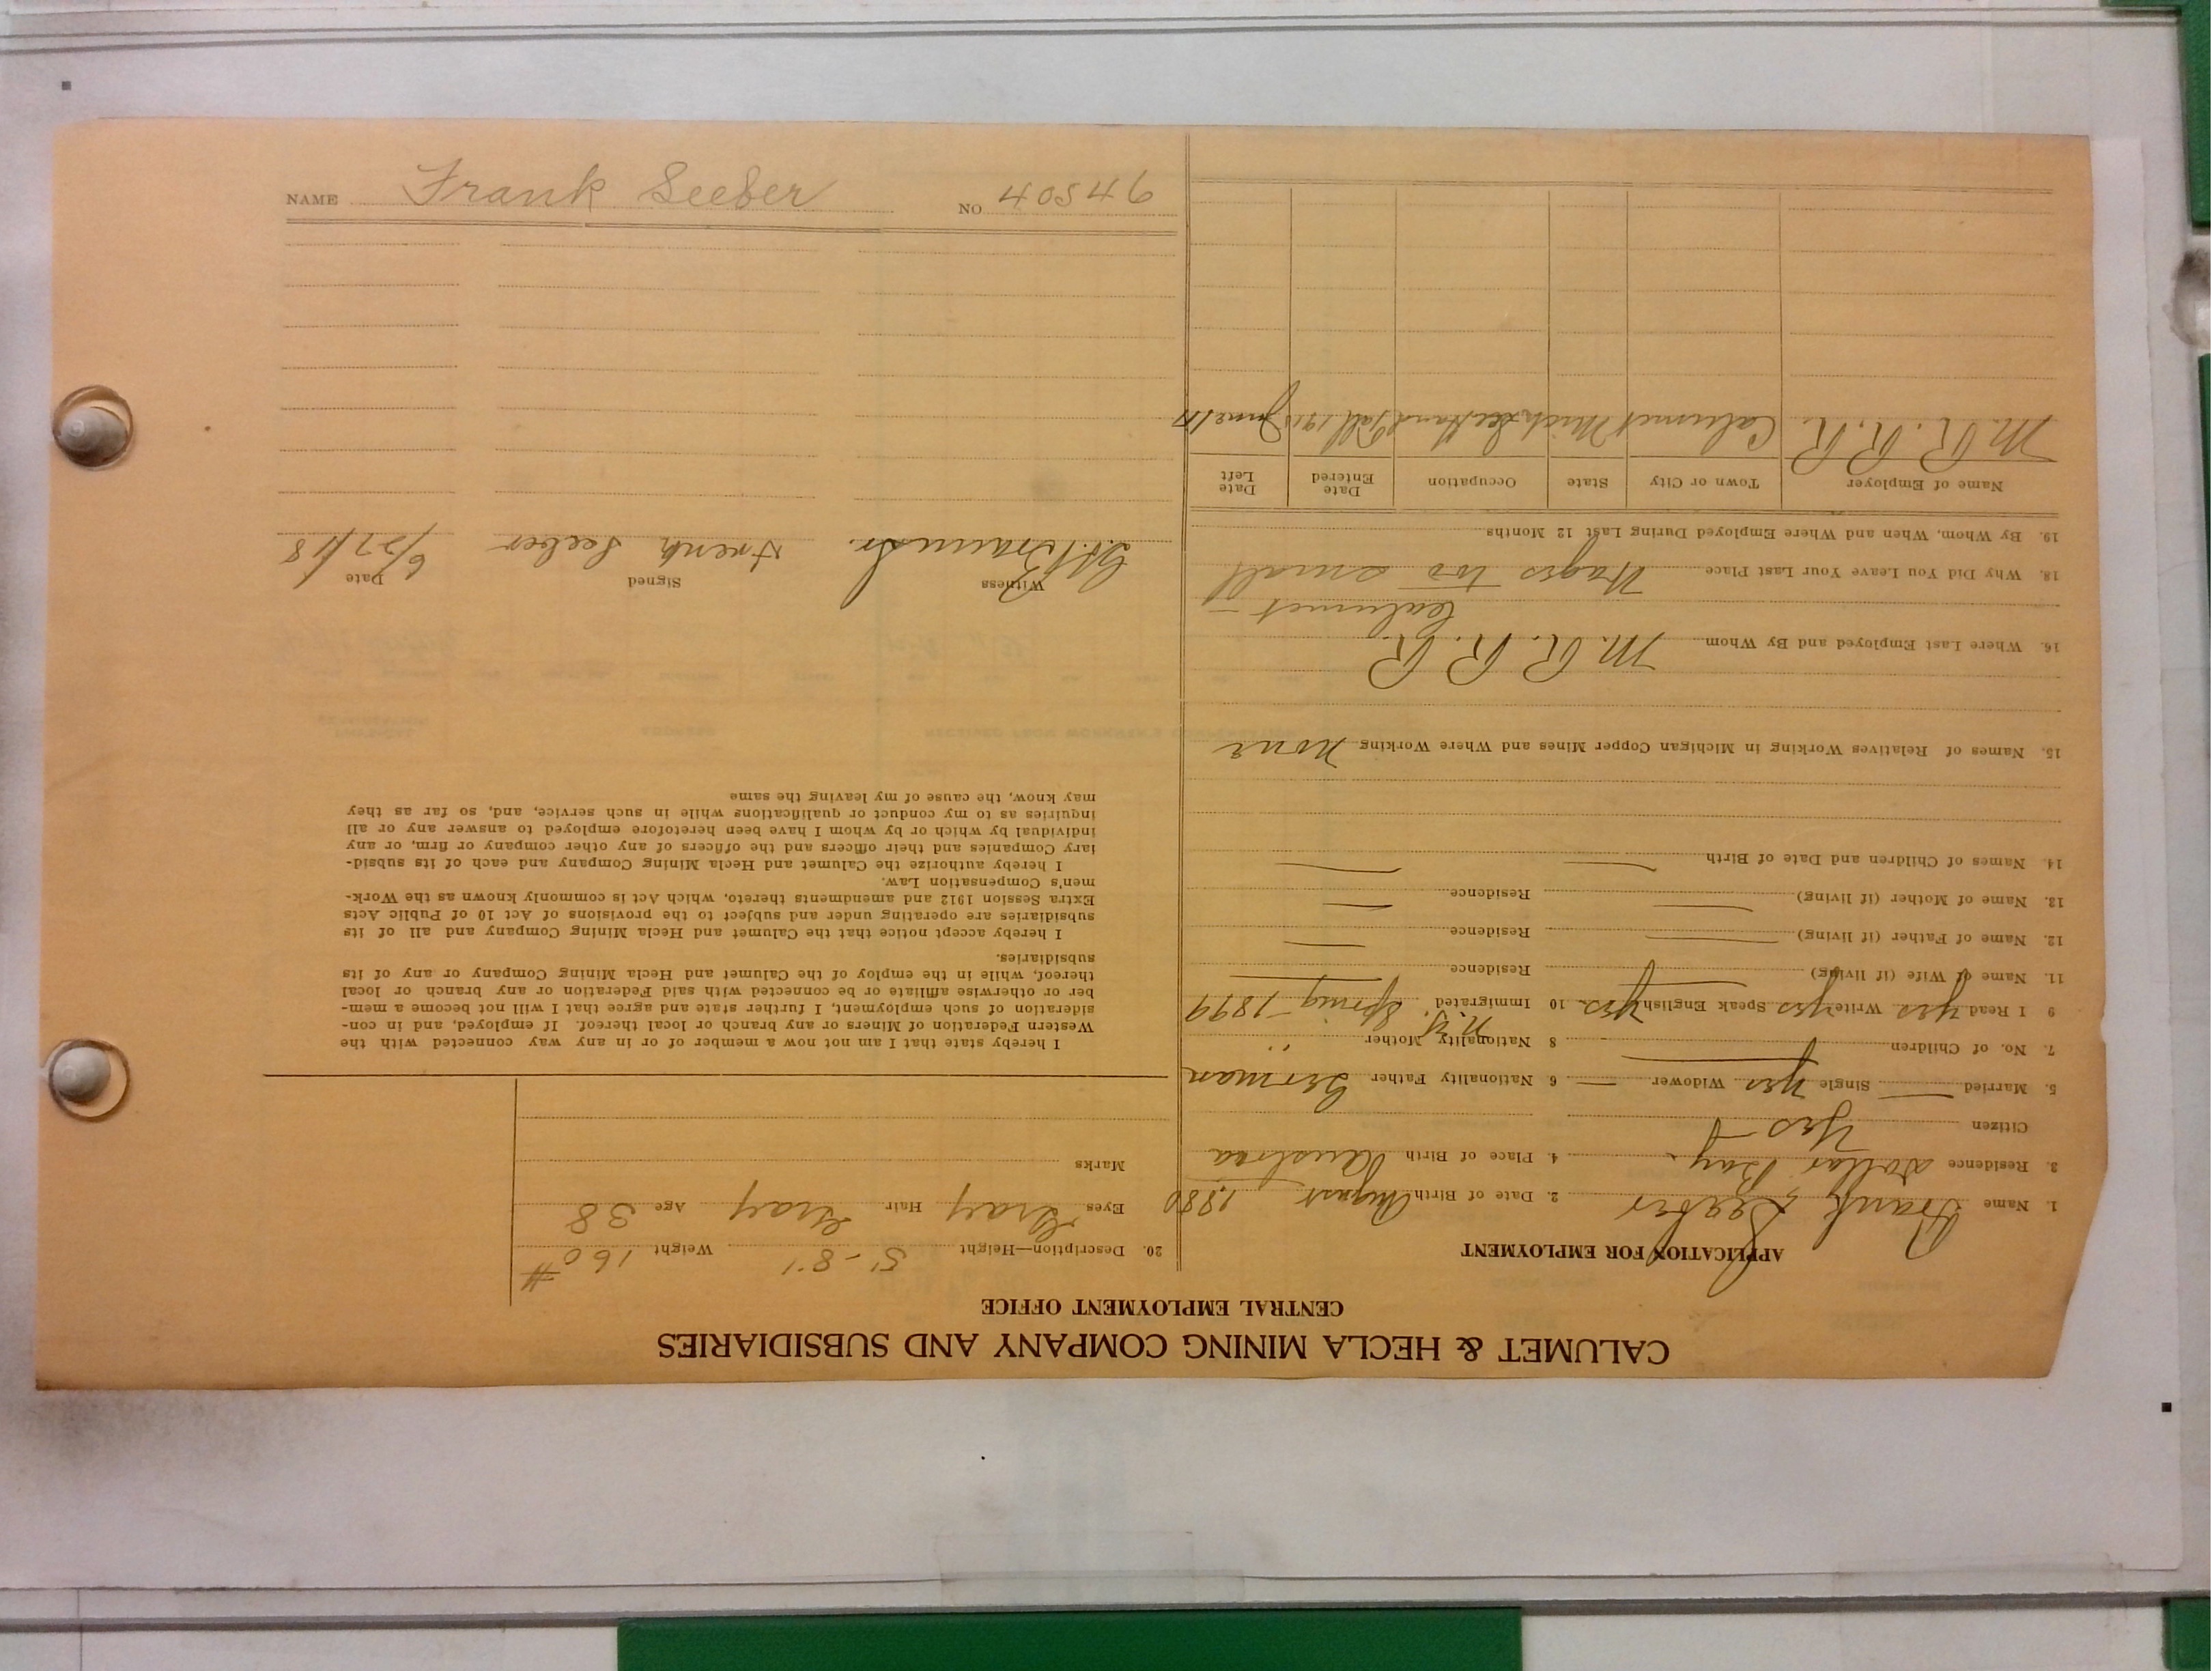 CALUMET & HECLA MINING COMPANY AND SUBSIDIARIES
CENTRAL EMPLOYMENT OFFICE
APPLICATION FOR EMPLOYMENT
1. Name Frank Seeber 2. Date of Birth August 1880
3. Residence Dollar Bay. 4. Place of Birth
Citizen Yes
5. Married — Single Yes Widower — 6 Nationality Father German
7. No. of Children — 8 Nationality Mother "
9 I Read Yes Write Yes Speak English Yes. 10 Immigrated N.Y. Spring - 1899
11. Name of Wife (if living) — Residence —
12. Name of Father (if living) — Residence —
13. Name of Mother (if living) — Residence —
14. Names of Children and Date of Birth — —
15. Names of Relatives Working in Michigan Copper Mines and Where Working none
16. Where Last Employed and By Whom M. R. R. R.
Calumet -
18. Why Did You Leave Your Last Place Wages too small
19. By Whom, When and Where Employed During Last 12 Months
Name of Employer Town or City State Occupation Date Entered Date Left
M. R. R. R. Calumet Mich Sect Hand Fall 191 June 1
20. Description—Height 5'-8" Weight 160 #
Eyes Gray Hair Gray Age 38
Marks
I hereby state that I am not now a member of or in any way connected with the
Western Federation of Miners or any branch or local thereof. If employed, and in con-
sideration of such employment, I further state and agree that I will not become a mem-
ber or otherwise affiliate or be connected with said Federation or any branch or local
thereof, while in the employ of the Calumet and Hecla Mining Company or any of its
subsidiaries.
I hereby accept notice that the Calumet and Hecla Mining Company and all of its
subsidiaries are operating under and subject to the provisions of Act 10 of Public Acts
Extra Session 1912 and amendments thereto, which Act is commonly known as the Work-
men's Compensation Law.
I hereby authorize the Calumet and Hecla Mining Company and each of its subsid-
iary Companies and their officers and the officers of any other company or firm, or any
individual by which or by whom I have been heretofore employed to answer any or all
inquiries as to my conduct or qualifications while in such service, and, so far as they
may know, the cause of my leaving the same
Witness Signed Date
Frank Seeber 6/27/18
NAME Frank Seeber NO 40546